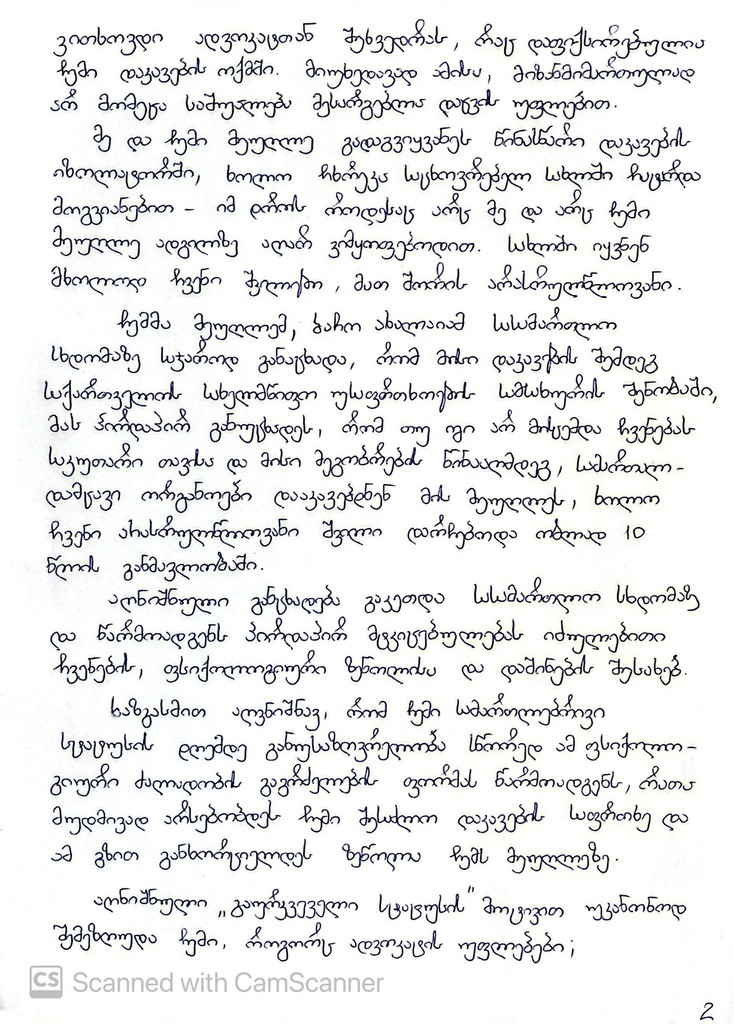 ვითხოვდი ადვოკატთან შეხვედრას, რაც დაფიქსირებულია
ჩემი დაკავების ოქმში. მიუხედავად ამისა, მიზანმიმართულად
არ მომეცა საშუალება მესარგებლა დაცვის უფლებით.
მე და ჩემი მეუღლე გადაგვიყვანეს წინასწარი დაკავების
იზოლატორში, ხოლო ჩხრეკა საცხოვრებელ სახლში ჩატარდა
მოგვიანებით – იმ დროს როდესაც არც მე და არც ჩემი
მეუღლე ადგილზე აღარ ვიმყოფებოდით. სახლში იყვნენ
მხოლოდ ჩვენი შვილები, მათ შორის არასრულწლოვანი.
ჩემმა მეუღლემ, ბაჩო ახალაიამ სასამართლო
სხდომაზე საჯაროდ განაცხადა, რომ მისი დაკავების შემდეგ
საქართველოს სახელმწიფო უსაფრთხოების სამსახურის შენობაში,
მას პირდაპირ განუცხადეს, რომ თუ იგი არ მისცემდა ჩვენებას
საკუთარი თავისა და მისი მეგობრების წინააღმდეგ, სამართალ-
დამცავი ორგანოები დააკავებდნენ მის მეუღლეს, ხოლო
ჩვენი არასრულწლოვანი შვილი დარჩებოდა ობლად 10
წლის განმავლობაში.
აღნიშნული განცხადება გაკეთდა სასამართლო სხდომაზე
და წარმოადგენს პირდაპირ მტკიცებულებას იძულებითი
ჩვენების, ფსიქოლოგიური ზეწოლისა და დაშინების შესახებ.
ხაზგასმით აღვნიშნავ, რომ ჩემი სამართლებრივი
სტატუსის დღემდე განუსაზღვრელობა სწორედ ამ ფსიქოლო-
გიური ძალადობის გაგრძელების ფორმას წარმოადგენს, რათა
მუდმივად არსებობდეს ჩემი შესაძლო დაკავების საფრთხე და
ამ გზით განხორციელდეს ზეწოლა ჩემს მეუღლეზე.
აღნიშნული „გაურკვეველი სტატუსის" მოტივით უკანონოდ
შემეზღუდა ჩემი, როგორც ადვოკატის უფლებები;
CS Scanned with CamScanner
2